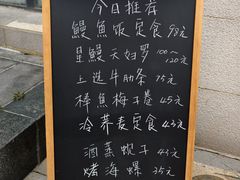 今日推荐
鰻魚饭定食 98元
星鰻天妇罗 100~120元
上选牛肋条 75元
梅子卷 45元
冷荞麦定食 43元
酒蒸蚬子 45元
烤海螺 35元